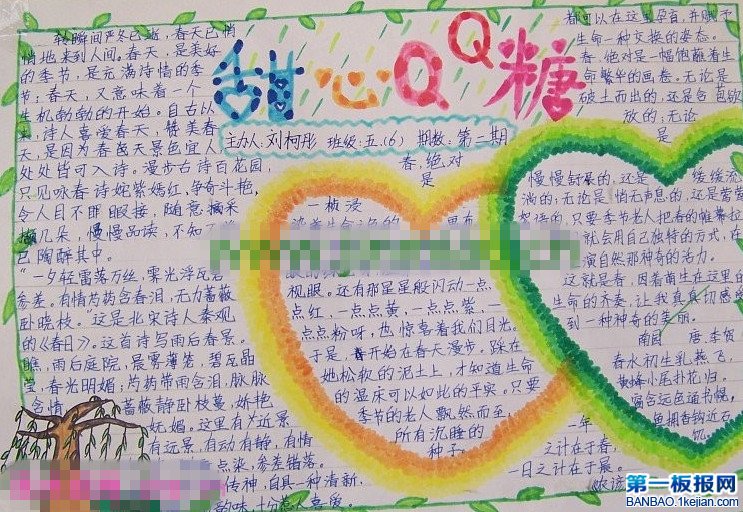 甜心QQ糖
主办人:刘柯彤 班级:五.(6) 期数:第二期
转瞬间严冬已逝,春天已悄
悄地来到人间。春天,是美好
的季节,是充满诗情的季
节;春天,又意味着一个
生机勃勃的开始。自古以
来,诗人喜爱春天,赞美春
天,是因为春色天景色宜人
处处皆可入诗。漫步古诗百花园,
只见咏春诗姹紫嫣红,争奇斗艳,
令人目不暇接,随意摘采
撷几朵,慢慢品读,不知不觉
已陶醉其中。
“一夕轻雷落万丝,霁光浮瓦碧
参差。有情芍药含春泪,无力蔷薇
卧晓枝。”这是北宋诗人秦观
的《春日》。这首诗写雨后春景。
瞧,雨后庭院,晨雾薄笼,碧瓦晶
莹,春光明媚;芍药带雨含泪,脉脉
含情,蔷薇静卧枝蔓,娇艳
妩媚。这里有近景
有远景,有动有静,有情
点染,参差错落。
传神,自具一种清新、
的味,十分惹人喜爱。
春,绝对
是
一桢浸
视眼。还有那星星般闪动一点
点红,一点点黄,一点点紫,一
点点粉呀,也惊喜着我们目光。
于是,春开始在春天漫步。踩在
她松软的泥土上,才知道生命
的温床可以如此的平实。只要
季节的老人飘然而至,
所有沉睡的
种子。
都可以在这里孕育,并赋予
生命一种交换的姿态。
春,绝对是一幅饱蘸着生
命繁华的画卷。无论是
破土而出的,还是含苞欲
放的;无论
是
慢慢舒展的,还是缓缓流
淌的;无论是悄无声息的,还是莺莺
只要季节老人把春的帷幕拉
就会用自己独特的方式,在
演自然那神奇的活力。
这就是春,因着萌生在这里的
生命的齐奏,让我真真切感受
到一种神奇的美丽。
南园 唐.李贺
春水初生乳燕飞,
黄蜂小尾扑花归。
窗含远色通书幌,
鱼拥香钩近石
矶。
一年
之计在于春,
一日之计在于晨。
第一板报网
BANBAO.1kejian.COM